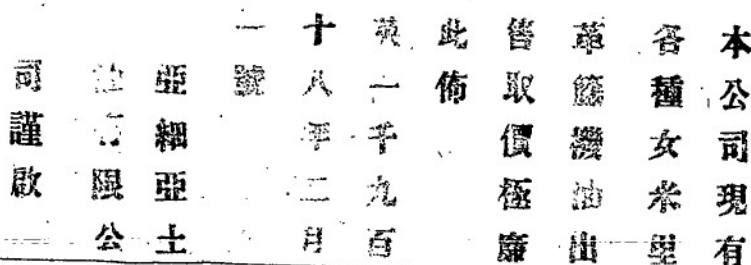 本公司現有
各種女米里
革機油出
售取價極廉
此佈
英一千九百
十八年二月
一號
亞細亞土
油有限公
司謹啟